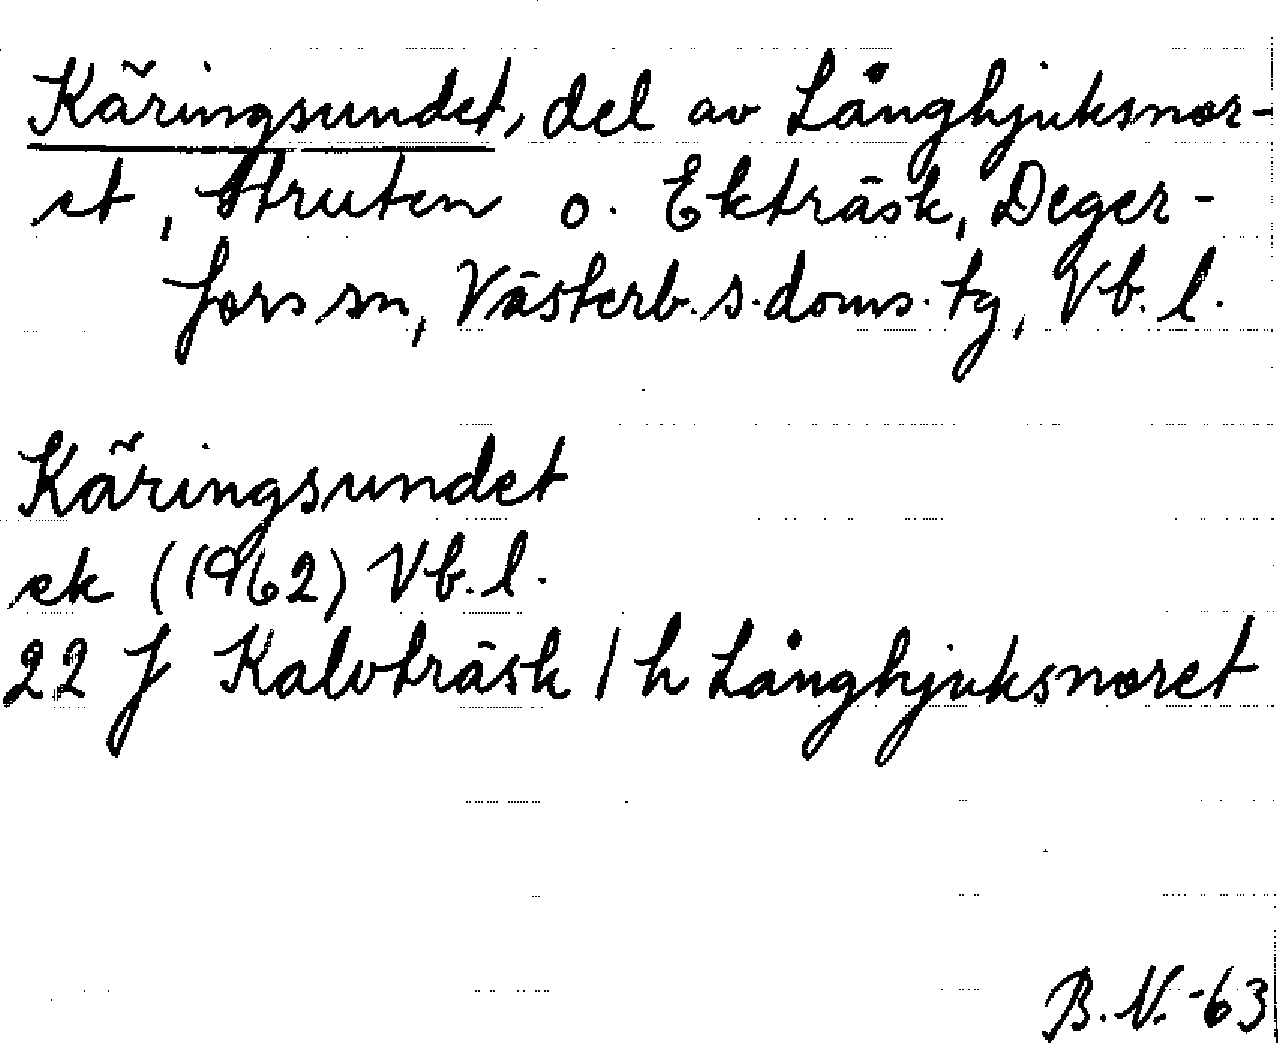 Käringsundet, del av Långhjuksnor-
et, Struten o. Ekträsk, Deger-
fors sn, Västerb. s. doms. tg, Vb. l.
Käringsundet
ek (1962) Vb. l.
22 J Kalvträsk / h Långhjuksnoret
B. N. -63